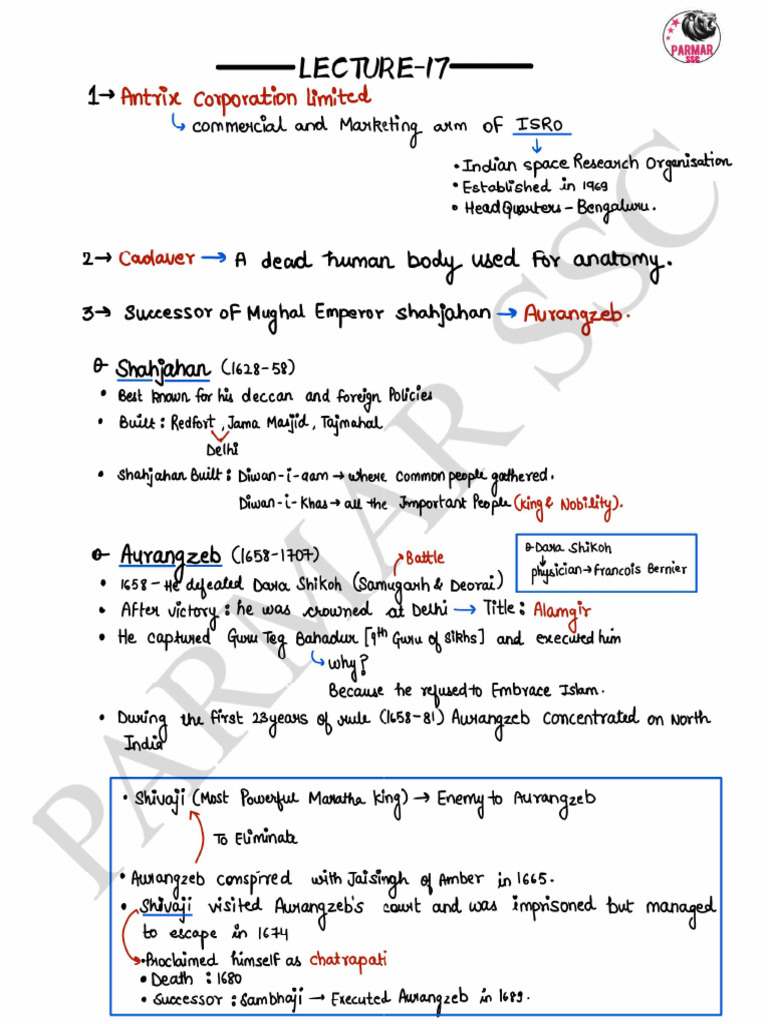 PARMAR
SSC
LECTURE-17
1→ Antrix Corporation Limited
commercial and Marketing arm of ISRO
• Indian space Research Organisation
• Established in 1969
• HeadQuarters - Bengaluru.
2→ Cadaver → A dead human body used for anatomy.
3→ Successor of Mughal Emperor Shahjahan → Aurangzeb.
Shahjahan (1628-58)
• Best known for his deccan and foreign Policies
• Built : Redfort , Jama Masjid , Tajmahal
Delhi
• Shahjahan Built : Diwan-i-aam → where common people gathered.
Diwan-i-Khas → all the Important People (King & Nobility).
Aurangzeb (1658-1707)
Battle
Dara Shikoh
physician → Francois Bernier
• 1658 - He defeated Dara Shikoh (Samugarh & Deorai)
• After victory : he was crowned at Delhi → Title : Alamgir
• He captured Guru Teg Bahadur [9th Guru of Sikhs] and executed him
why?
Because he refused to Embrace Islam.
• During the first 23 years of rule (1658-81) Aurangzeb concentrated on North
India
• Shivaji (Most Powerful Maratha King) → Enemy to Aurangzeb
To Eliminate
• Aurangzeb conspired with Jaisingh of Amber in 1665.
• Shivaji visited Aurangzeb's court and was imprisoned but managed
to escape in 1674
• Proclaimed himself as chatrapati
• Death : 1680
• Successor : Sambhaji → Executed Aurangzeb in 1689.
PARMAR SSC